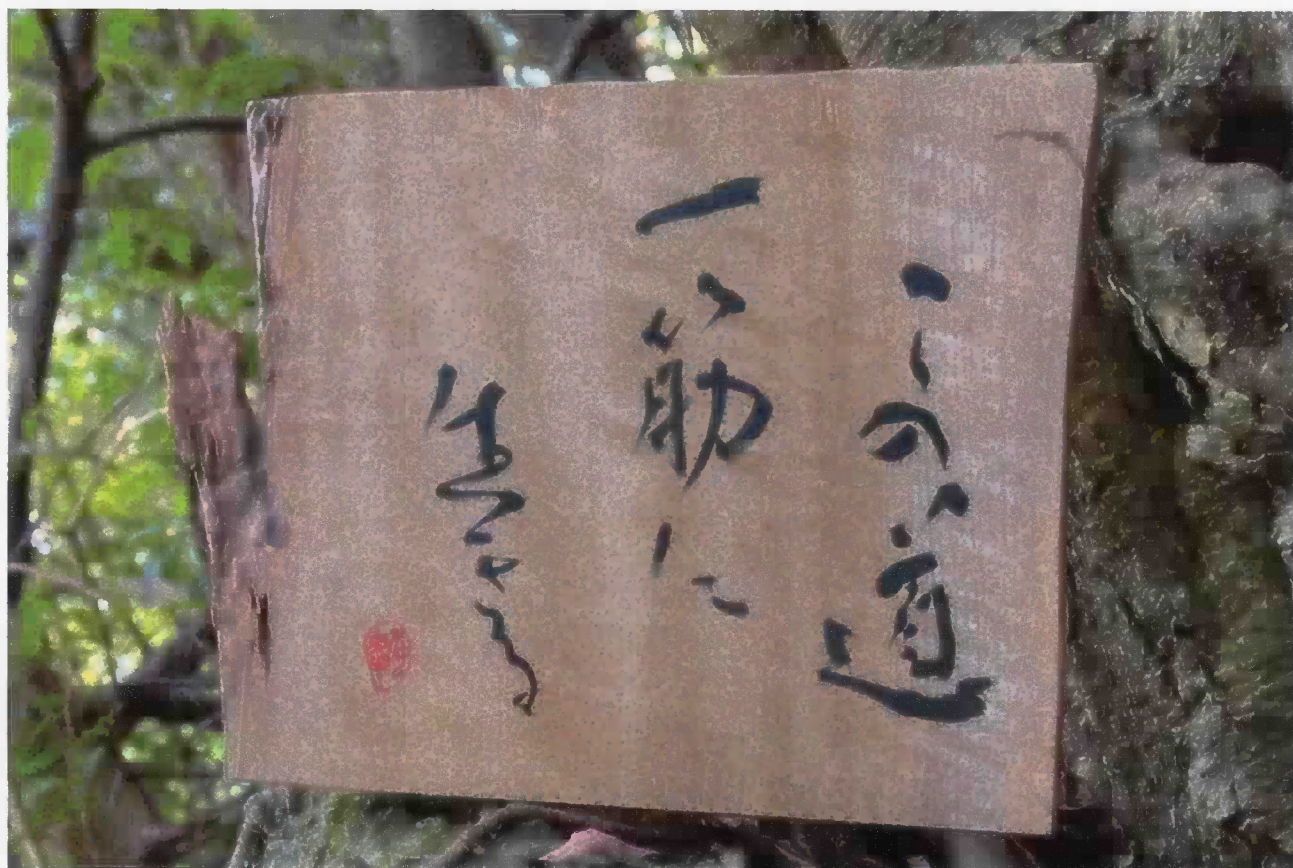 この道
一筋に
生きる